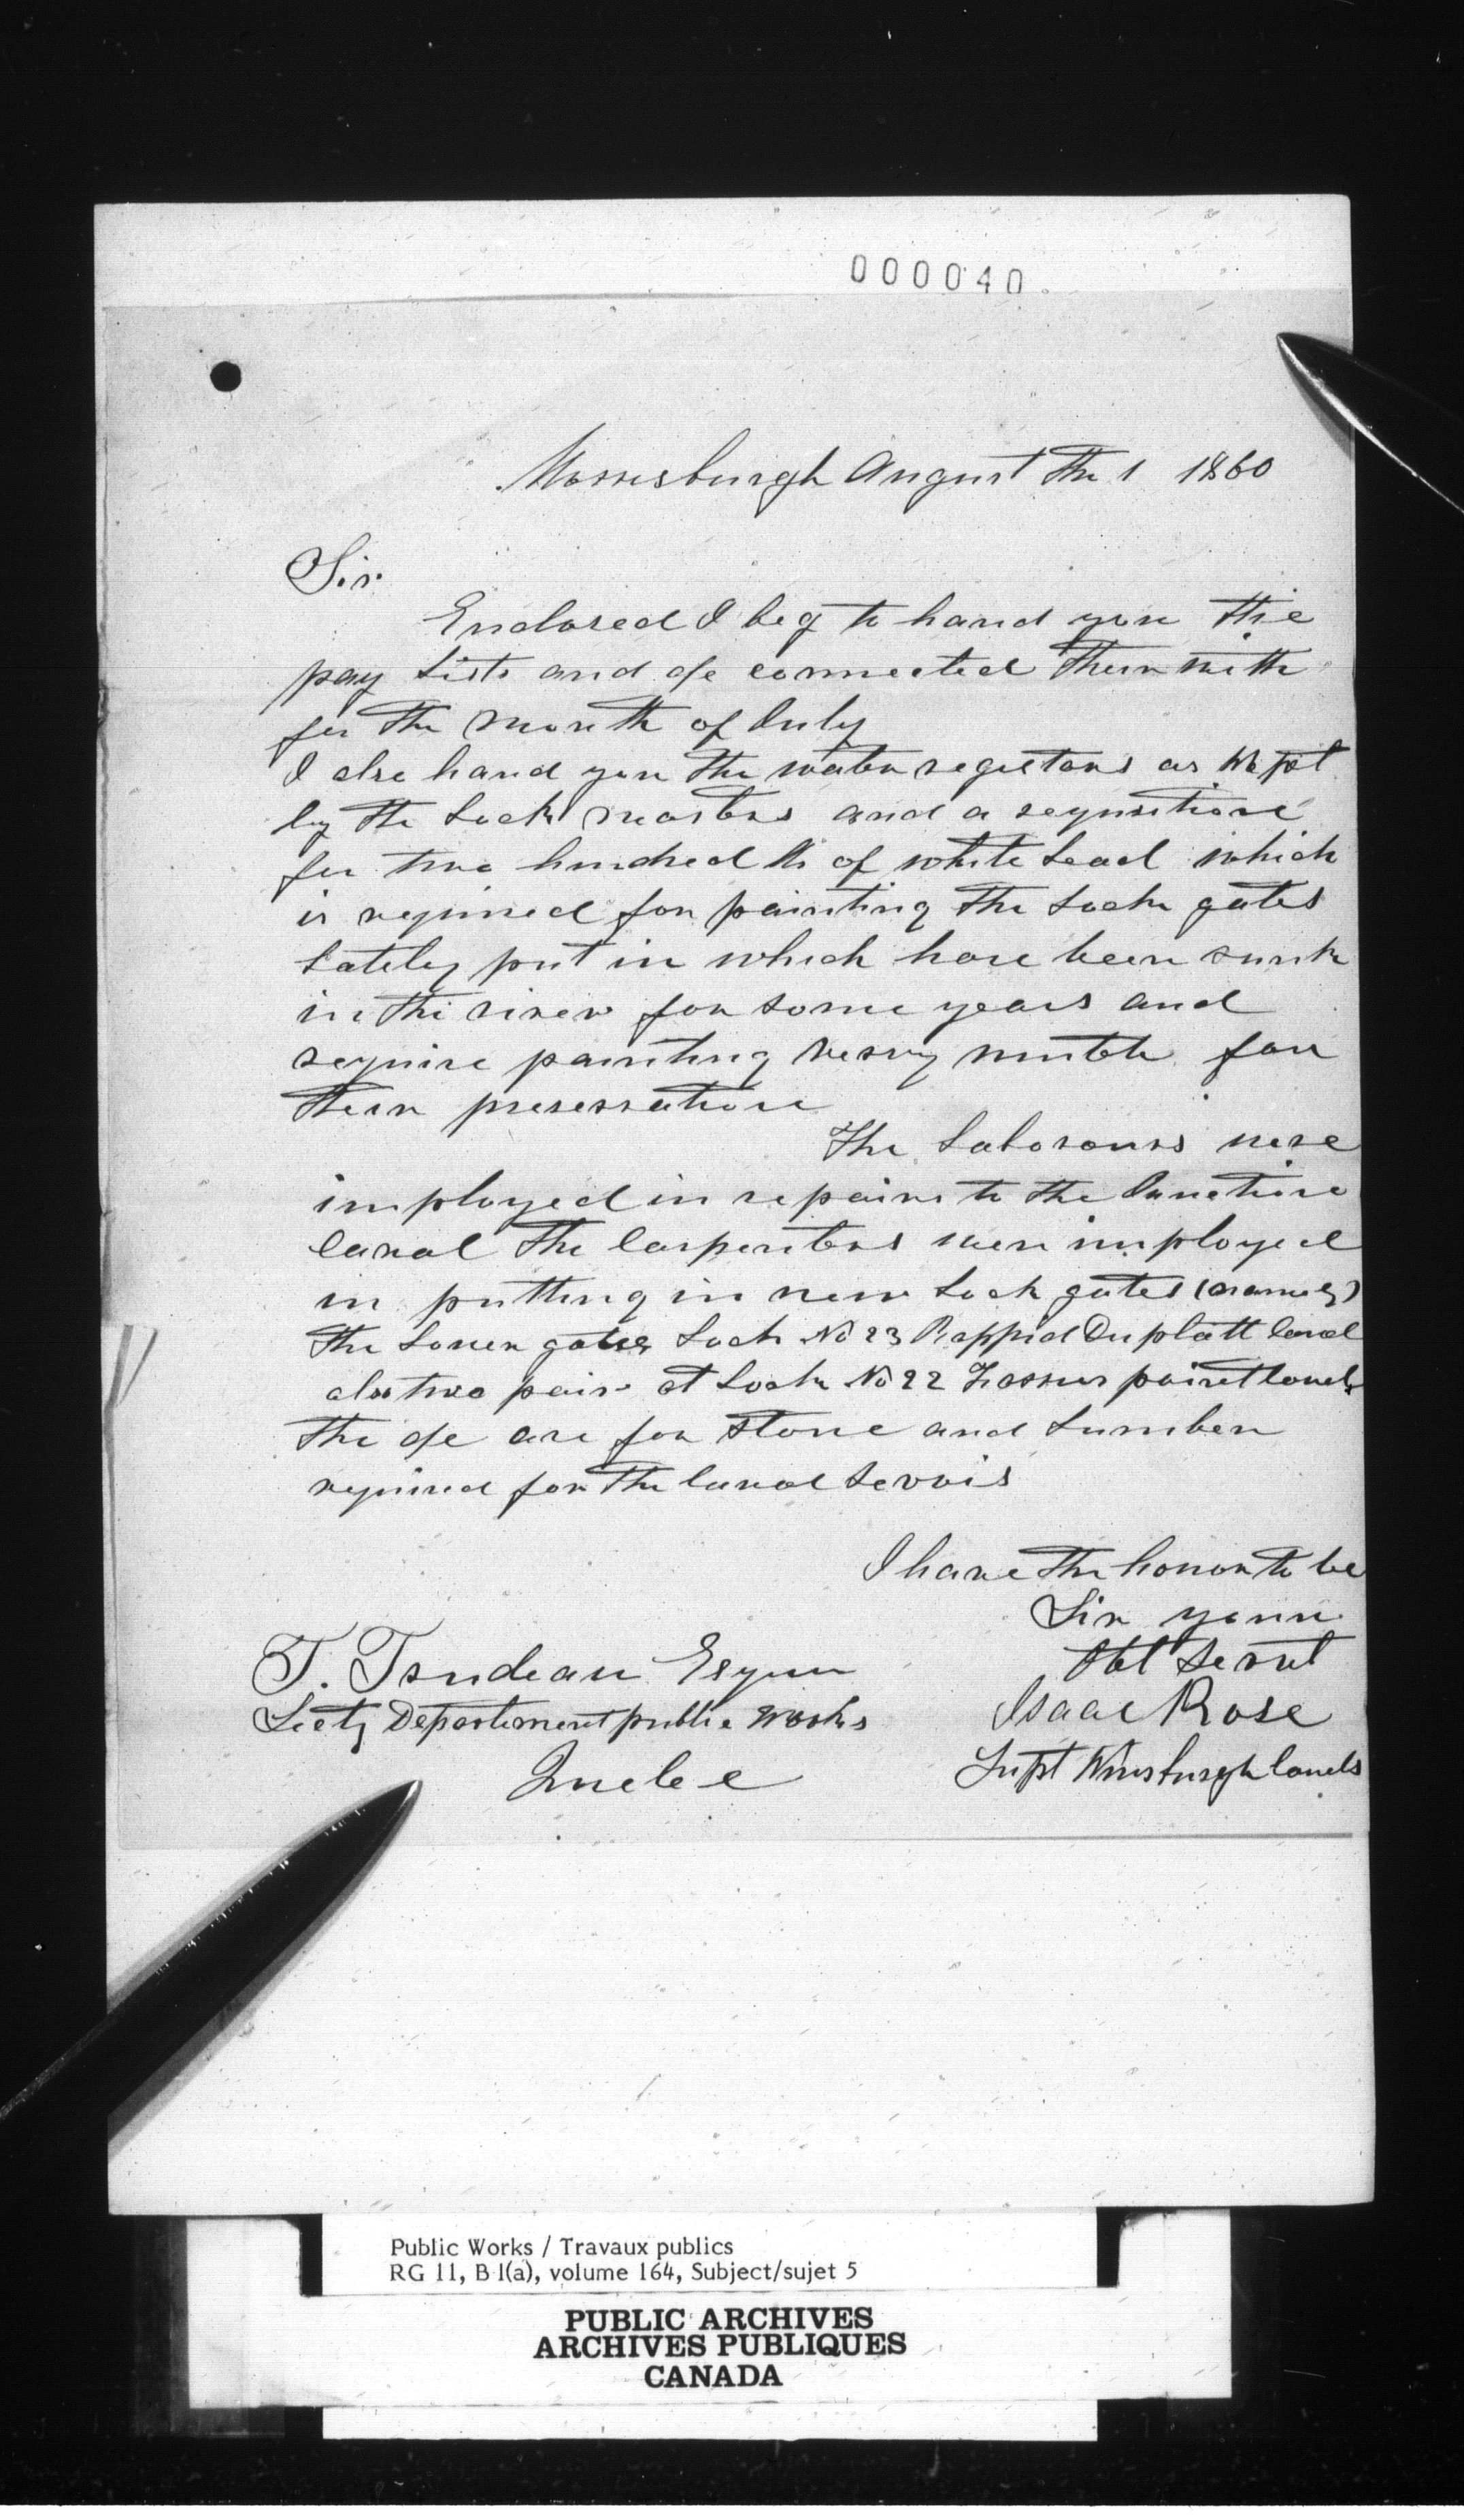 000040
Morrisburgh August the 1 1860
Sir
Enclosed I beg to hand you the
pay Lists and a/c connected therewith
for the month of July
I also hand you the water registars as kept
by the Lock masters and a requsitione
for two hundred lb of white Lead which
is required for painting the Lock gates
Lately put in which have been sunk
in the river for some years and
require painting verry mutch for
their preservatione
The Labourours were
imployed in repairs to the Junctione
Canal The Carpenters were imployed
in putting in new Lock gates (namely)
the Lower gates Lock No 23 Rappid Du platt Canal
also two pair at Lock No 22 Farrns point Canal
the a/c are for Stone and Lumber
required for the Canal Servis
I have the honor to be
Sir your
Obt Servt
Isaac Rose
Supt Wmsburgh Canals
T. Trudeau Esquir
Secty Department public Works
Quebec
Public Works / Travaux publics
RG 11, B 1(a), volume 164, Subject/sujet 5
PUBLIC ARCHIVES
ARCHIVES PUBLIQUES
CANADA